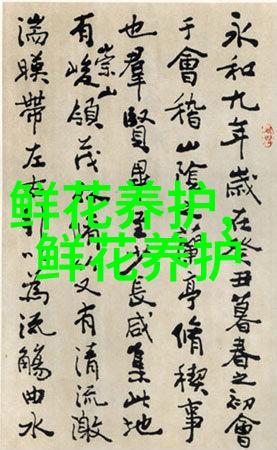 永和九年歲在癸丑暮春之初會
于會稽山陰之蘭亭脩稧事
也羣賢畢至少長咸集此地
有崇山峻領茂林脩竹又有清流激
湍暎帶左右引以為流觴曲水
鲜花养护,
鲜花养护